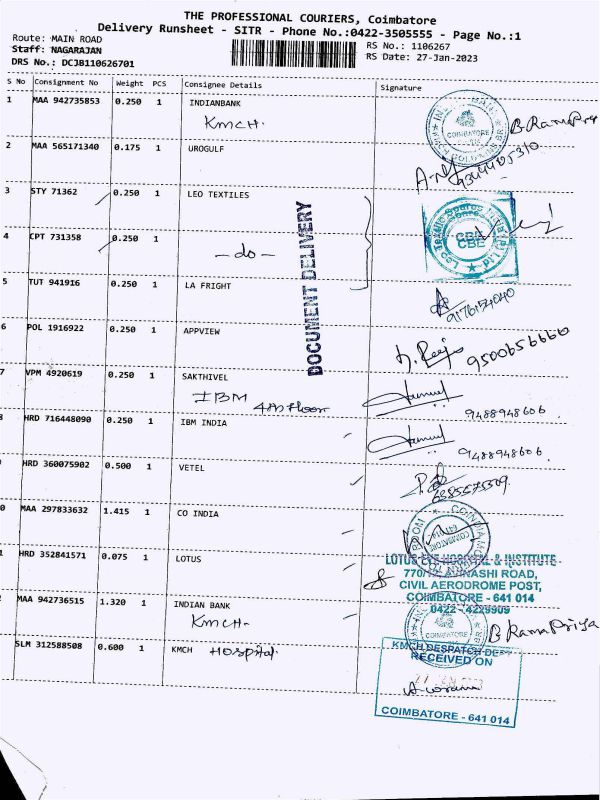 THE PROFESSIONAL COURIERS, Coimbatore
Delivery Runsheet - SITR - Phone No.:0422-3505555 - Page No.:1
Route: MAIN ROAD
RS No.: 1106267
Staff: NAGARAJAN
RS Date: 27-Jan-2023
DRS No.: DCJB110626701
S No Consignment No Weight PCS Consignee Details Signature
1 MAA 942735853 0.250 1 INDIANBANK
KMCH.
B.RamaPriya
2 MAA 565171340 0.175 1 UROGULF
3 STY 71362 0.250 1 LEO TEXTILES
4 CPT 731358 0.250 1
-do-
CBE
DOCUMENT DELIVERY
5 TUT 941916 0.250 1 LA FRIGHT
9176154040
6 POL 1916922 0.250 1 APPVIEW
9500656666
7 VPM 4920619 0.250 1 SAKTHIVEL
IBM 4th Floor
9488948606
HRD 716448090 0.250 1 IBM INDIA
9488948606.
HRD 360075902 0.500 1 VETEL
0 MAA 297833632 1.415 1 CO INDIA
1 HRD 352841571 0.075 1 LOTUS
LOTUS EYE HOSPITAL & INSTITUTE
AVINASHI ROAD,
CIVIL AERODROME POST,
COIMBATORE - 641 014
0422 - 4229909
2 MAA 942736515 1.320 1 INDIAN BANK
KMCH-
COIMBATORE
B RamaPriya
SLM 312588508 0.600 1 KMCH Hospital
KMCH DESPATCH DEPT
RECEIVED ON
COIMBATORE - 641 014